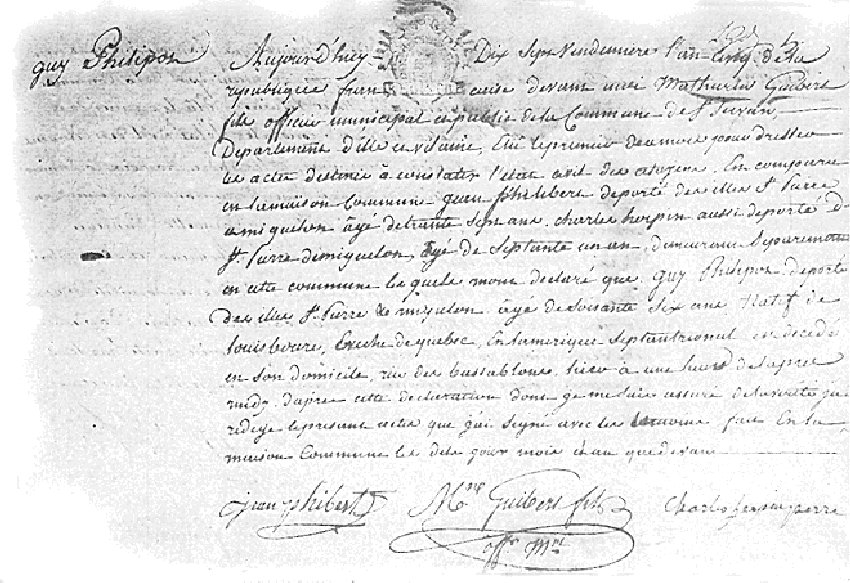 guy Philipon
Aujourd'huy Dix Sept Vendemiere l'an Cinq de la
republique fran caise devant moi Mathurin Guibert
fils officier municipal et public de la Commune de St Servan,
Departement d'ille et vilaine, Elu le premier
le acte destiné à constater l'etat civil des citoyens. En comparu
en la maison Commune jean Philibert deporté des illes St Pierre
a miquelon âgé de trante Sept ans, charles hospin aussi deporté de
St Pierre de miquelon, âgé de Septante un an, demeurant
en cette commune les quels mont declaré que guy Philipon deporté
des illes St Pierre & miquelon âgé de Soixante Six ans Natif de
louisbourc, Evêche de quebec, En lamerique Septantrional est décédé
en Son domicile, rue des bassablons, hier à une heure de lapres
midy. d'apres cette declaration dont je me suis assuré de la verité jai
redigé le present acte que j'ai Signé avec les temoins fait En la
maison Commune les dits jour mois et an que devant
jean phibert Mnn Guibert fils Charles
offr Mal